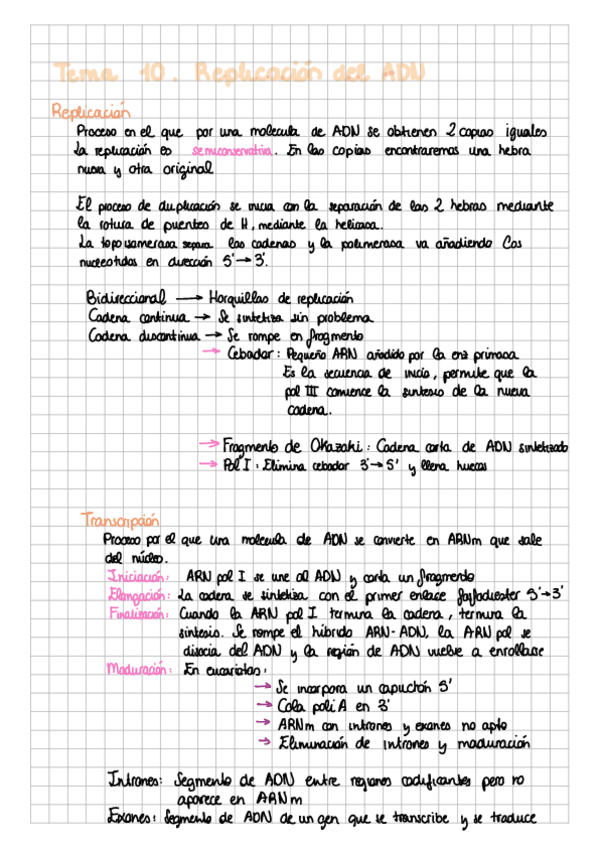 Tema 10. Replicación del ADN
Replicación
Proceso en el que por una molecula de ADN se obtienen 2 copias iguales
La replicación es semiconservativa. En las copias encontraremos una hebra
nueva y otra original
El proceso de duplicación se inicia con la separación de las 2 hebras mediante
la rotura de puentes de H, mediante la helicasa.
La topoisomerasa separa las cadenas y la polimerasa va añadiendo los
nucleotidos en dirección 5'→3'.
Bidireccional → Horquillas de replicación
Cadena continua → Se sintetiza sin problema
Cadena discontinua → Se rompe en fragmento
→ Cebador: Pequeño ARN añadido por la enz primasa
Es la secuencia de inicio, permite que la
pol III comience la sintesis de la nueva
cadena.
→ Fragmento de Okazaki: Cadena corta de ADN sintetizado
→ Pol I: Elimina cebador 3'→5' y llena huecos
Transcripción
Proceso por el que una molecula de ADN se convierte en ARNm que sale
del núcleo.
Iniciación: ARN pol I se une al ADN y corta un fragmento
Elongación: La cadena se sintetiza con el primer enlace fosfodiester 5'→3'
Finalización: Cuando la ARN pol I termina la cadena, termina la
sintesis. Se rompe el híbrido ARN-ADN, la ARN pol se
disocia del ADN y la región de ADN vuelve a enrollarse
Maduración: En eucariotas:
→ Se incorpora un capuchón 5'
→ Cola poli A en 3'
→ ARNm con intrones y exones no apto
→ Eliminación de intrones y maduración
Intrones: Segmento de ADN entre regiones codificantes pero no
aparece en ARNm
Exones: Segmento de ADN de un gen que se transcribe y se traduce